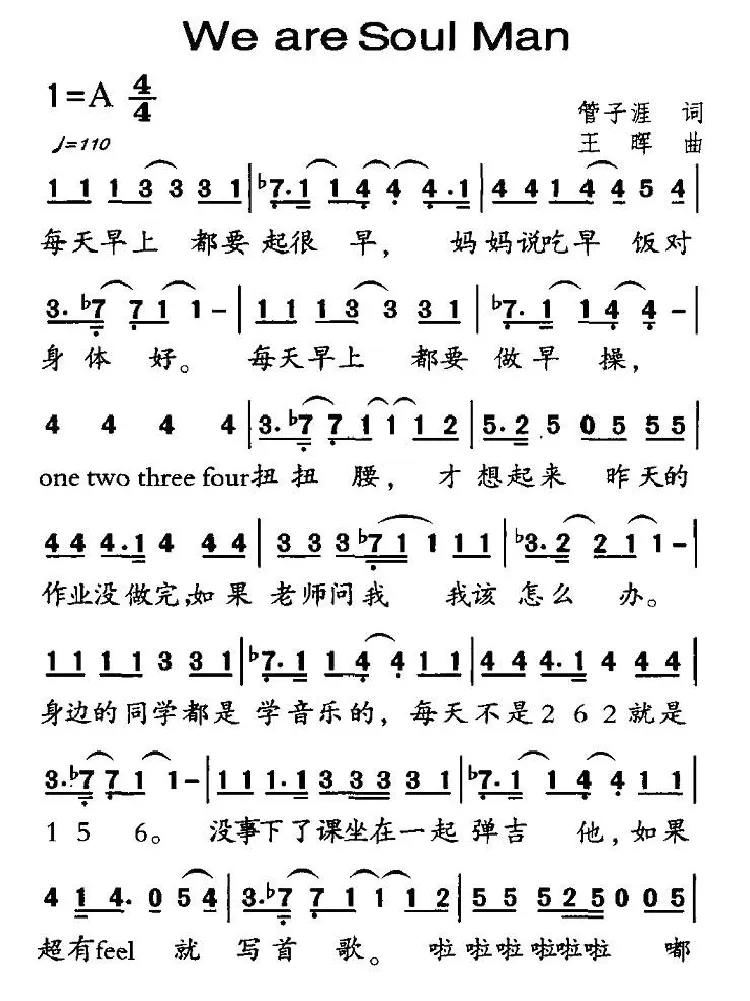 We are Soul Man
1=A 4/4
管子涯 词
♩=110
王 晖 曲
1 1 1 3 3 3 1 | ♭7. 1 1 4 4 4. 1 | 4 4 1 4 4 5 4 |
每天早上 都要起很 早， 妈妈说吃早 饭对
3. ♭7 7 1 1 - | 1 1 1 3 3 3 1 | ♭7. 1 1 4 4 - |
身体 好。 每天早上 都要做早 操，
4 4 4 4 | 3. ♭7 7 1 1 1 2 | 5. 2 5 0 5 5 5 |
one two three four扭扭 腰， 才想起来 昨天的
4 4 4. 1 4 4 4 | 3 3 3 ♭7 1 1 1 1 | ♭3. 2 2 1 1 - |
作业没做完，如果 老师问我 我该怎么 办。
1 1 1 1 3 3 1 | ♭7. 1 1 4 4 1 1 | 4 4 4. 1 4 4 4 |
身边的同学都是 学音乐的， 每天不是２６２就是
3. ♭7 7 1 1 - | 1 1 1. 1 3 3 3 3 1 | ♭7. 1 1 4 4 1 1 |
1 5 6。 没事下了课坐在一起 弹吉 他，如果
4 1 4. 0 5 4 | 3. ♭7 7 1 1 1 2 | 5 5 5 2 5 0 0 5 |
超有feel 就 写首 歌。 啦 啦啦啦啦啦 嘟